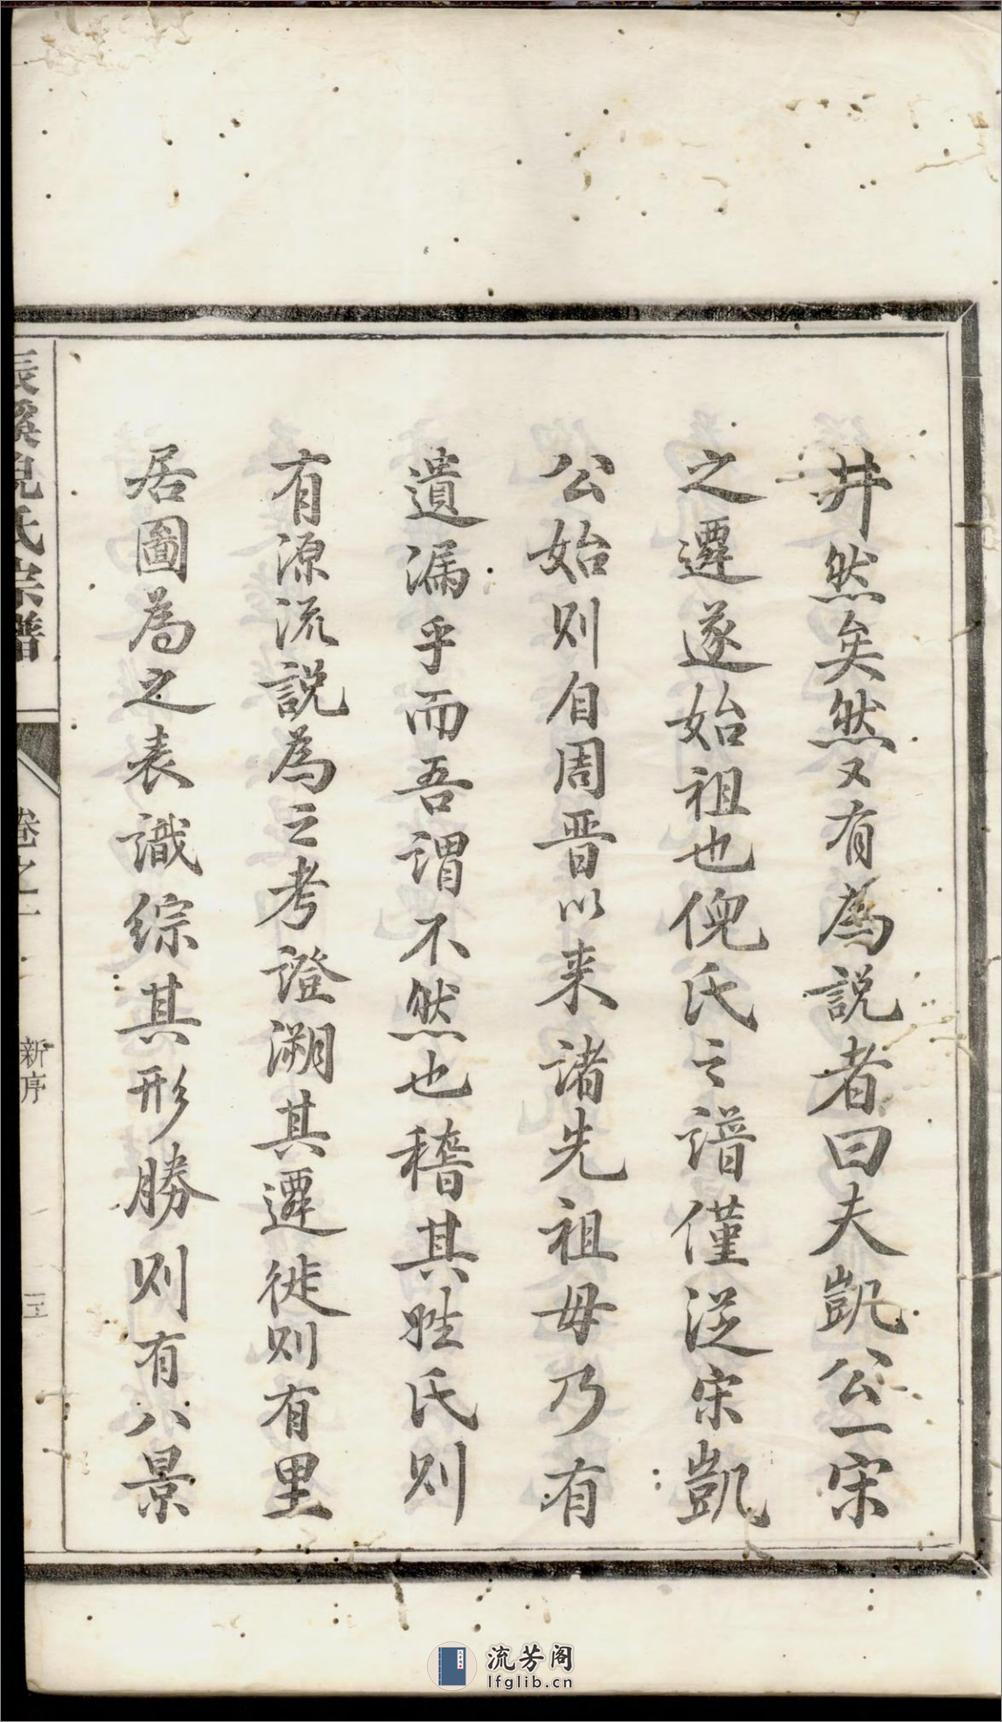 井然矣然又有為説者曰夫凱公一宋
之遷遂始祖也倪氏之譜僅從宋凱
公始則自周晋以来諸先祖毋乃有
遺漏乎而吾謂不然也稽其姓氏則
有源流説為之考證溯其遷徙則有里
居圖為之表識綜其形勝則有八景
辰溪倪氏宗譜
卷之一
新序
三
流芳阁
lfglib.cn